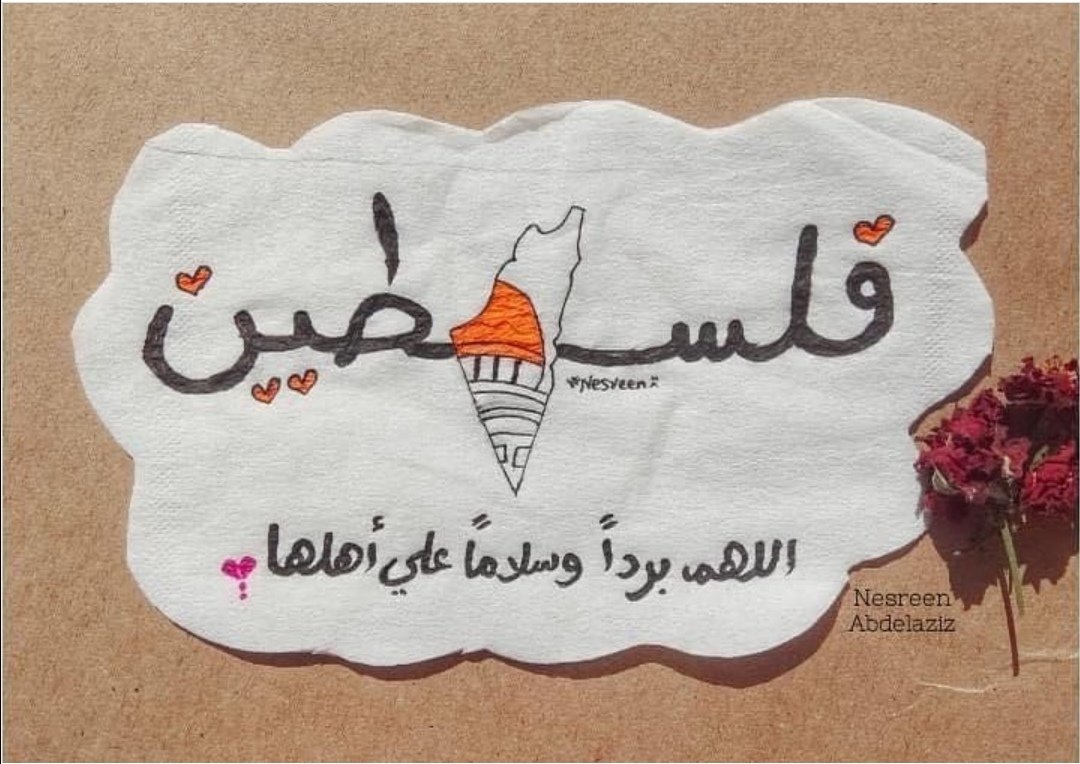 فلسطين
Nesreen
اللهم برداً وسلاماً علي أهلها
Nesreen
Abdelaziz